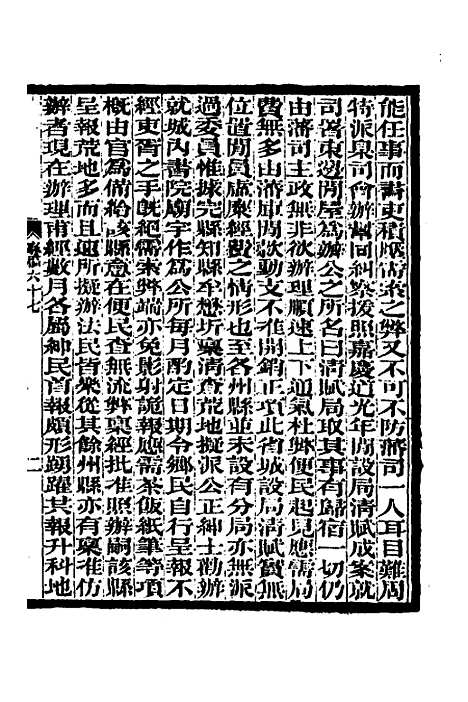 能任事而書吏積煙需索之弊又不可不防藩司一人耳目難周
特派臬司會辦幫同糾察援照嘉慶道光年間設局清賦成案就
司署東邊閒屋爲辦公之所名曰清賦局取其事有歸宿一切仍
由藩司主政無非欲辦理順速上下通氣杜弊便民起見應需局
費無多由藩庫閒款動支不准開銷正項此省城設局清賦實無
位置閒員虛縻經費之情形也至各州縣並未設有分局亦無派
過委員惟據完縣知縣牟懋圻稟清查荒地擬派公正紳士勸辦
就城內書院廟宇作爲公所每月酌定日期令鄉民自行呈報不
經吏胥之手旣絕需索弊端亦免影射詭報應需茶飯紙筆等項
概由官爲備給該縣意在便民查無流弊稟經批准照辦嗣該縣
呈報荒地多而且速所擬辦法民皆樂從其餘州縣亦有稟准仿
辦者現在辦理甫經數月各屬紳民首報頗形踴躍其報升科地
六十七
二